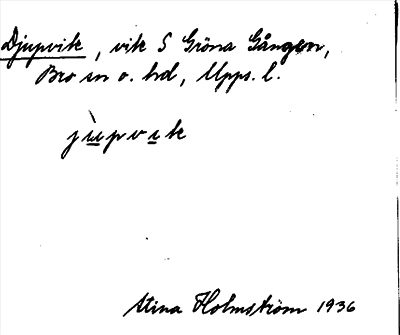 Djupvik, vik S Gröna Gången,
Bro sn o. hd, Upps. l.
jùpvɩk
Stina Holmström 1936